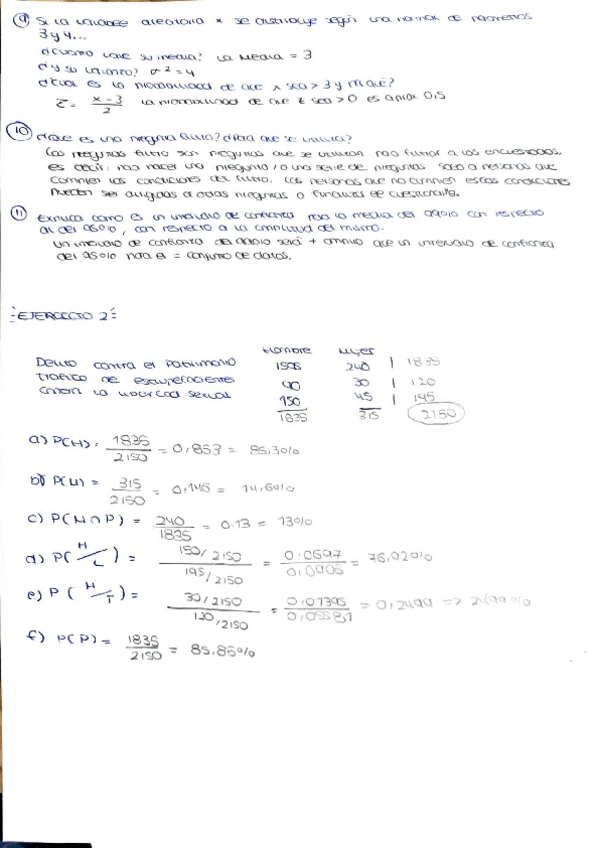 9 Si la variable aleatoria x se distribuye según una normal de parámetros
3 y 4...
¿Cuánto vale su media? La Media = 3
¿Y su varianza? σ² = 4
¿Cuál es la probabilidad de que x sea > 3 y por qué?
Z = x - 3 / 2 La probabilidad de que z sea > 0 es aprox 0,5
10 ¿Qué es una pregunta filtro? ¿Para qué se utiliza?
Las preguntas filtro son preguntas que se utilizan para filtrar a los encuestados,
es decir, para hacer una pregunta / o una serie de preguntas solo a personas que
cumplen las condiciones del filtro. Las personas que no cumplen esas condiciones
pueden ser dirigidas a otras preguntas o finalizar el cuestionario.
11 Explica cómo es un intervalo de confianza para la media del 99% con respecto
al del 95%, con respecto a la amplitud del mismo.
Un intervalo de confianza del 99% será + amplio que un intervalo de confianza
del 95% para el = conjunto de datos.
EJERCICIO 2:
Hombre Mujer
Delito contra el Patrimonio 1595 240 | 1835
Tráfico de estupefacientes 90 30 | 120
Contra la libertad sexual 150 45 | 195
1835 315 2150
a) P(H) = 1835 / 2150 = 0,853 = 85,3%
b) P(M) = 315 / 2150 = 0,146 = 14,6%
c) P(M∩P) = 240 / 1835 = 0.13 = 13%
d) P(H/L) = 150/2150 / 195/2150 = 0.0697 / 0.0906 = 76,92%
e) P(M/T) = 30/2150 / 120/2150 = 0,01395 / 0,05581 = 0,2499 => 24,99%
f) P(P) = 1835 / 2150 = 85.85%